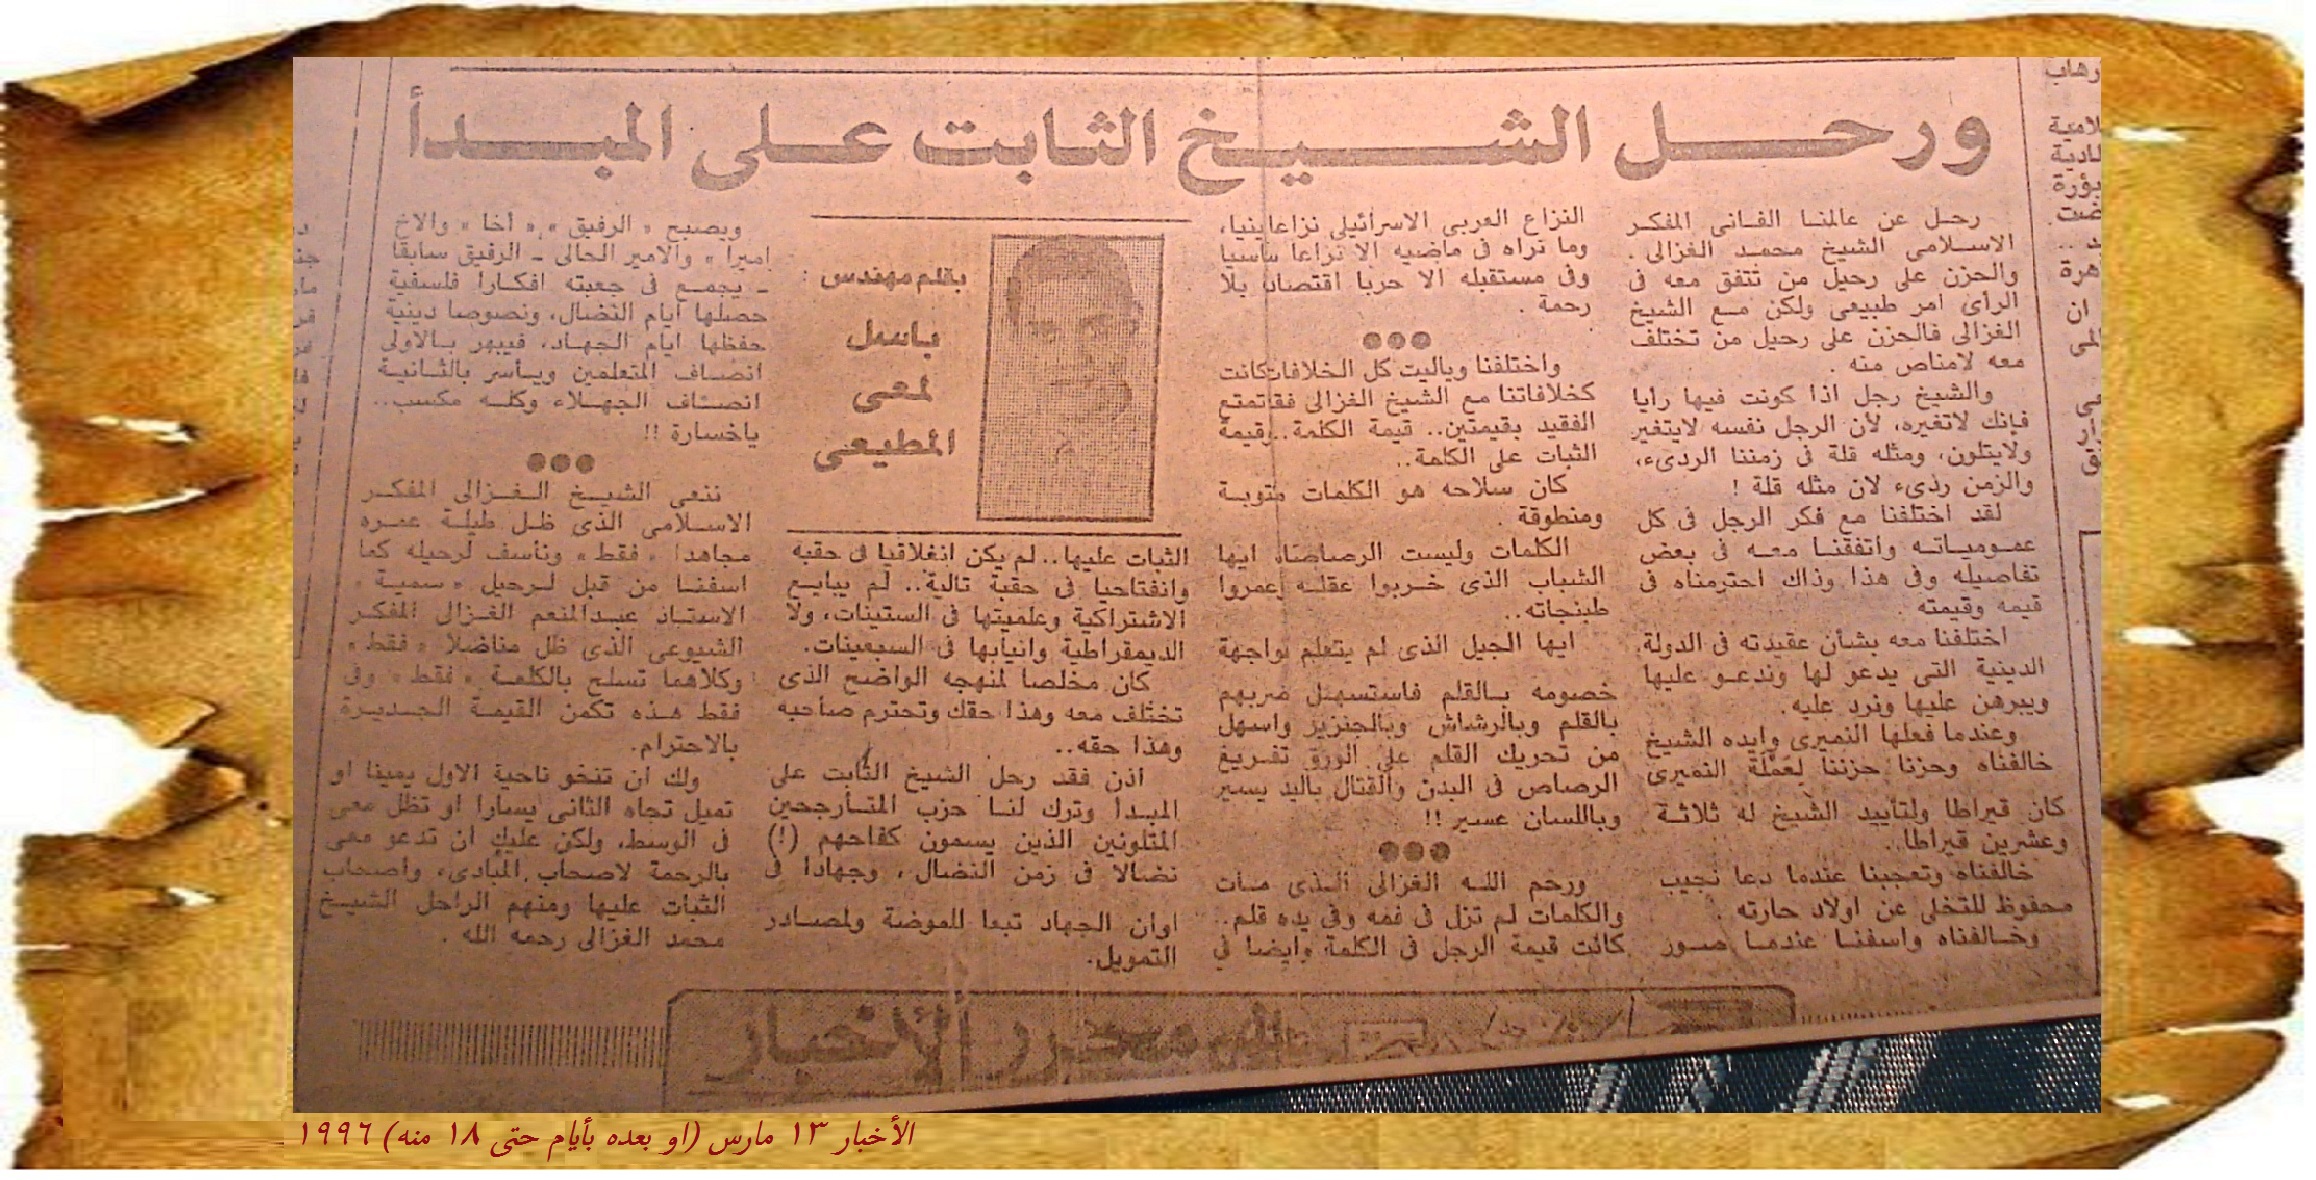 ورحل الشيخ الثابت على المبدأ
رحل عن عالمنا الفانى المفكر
الاسلامى الشيخ محمد الغزالى .
والحزن على رحيل من تتفق معه فى
الرأى امر طبيعى ولكن مع الشيخ
الغزالى فالحزن على رحيل من تختلف
معه لامناص منه .
والشيخ رجل اذا كونت فيها رايا
فإنك لاتغيره، لأن الرجل نفسه لايتغير
ولايتلون، ومثله قلة فى زمننا الردىء،
والزمن ردىء لان مثله قلة !
لقد اختلفنا مع فكر الرجل فى كل
عمومياته واتفقنا معه فى بعض
تفاصيله وفى هذا وذاك احترمناه فى
قيمه وقيمته .
اختلفنا معه بشأن عقيدته فى الدولة
الدينية التى يدعو لها وندعو عليها
ويبرهن عليها ونرد عليه.
وعندما فعلها النميرى وايده الشيخ
خالفناه وحزنا حزننا لعَمْلَة النميرى
كان قيراطا ولتأييد الشيخ له ثلاثة
وعشرين قيراطا..
خالفناه وتعجبنا عندما دعا نجيب
محفوظ للتخلى عن اولاد حارته .
وخالفناه واسفنا عندما صور
النزاع العربى الاسرائيلى نزاعا دينيا،
وما نراه فى ماضيه الا نزاعا سياسيا
وفى مستقبله الا حربا اقتصادية بلا
رحمة .
●●●
واختلفنا وياليت كل الخلافات كانت
كخلافاتنا مع الشيخ الغزالى فقد تمتع
الفقيد بقيمتين.. قيمة الكلمة.. وقيمة
الثبات على الكلمة..
كان سلاحه هو الكلمات مكتوبة
ومنطوقة .
الكلمات وليست الرصاصات ايها
الشباب الذى خربوا عقله وعمروا
طبنجاته..
ايها الجيل الذى لم يتعلم مواجهة
خصومه بالقلم فاستسهل ضربهم
بالقلم وبالرشاش وبالجنزير واسهل
من تحريك القلم على الورق تفريغ
الرصاص فى البدن والقتال باليد يسير
وباللسان عسير !!
●●●
ورحم الله الغزالى الذى مات
والكلمات لم تزل فى فمه وفى يده قلم..
كانت قيمة الرجل فى الكلمة وايضا في
بقلم مهندس :
باسل
لمعى
المطيعى
الثبات عليها.. لم يكن انغلاقيا فى حقبة
وانفتاحيا فى حقبة تالية.. لم يبايع
الاشتراكية وعلميتها فى الستينات، ولا
الديمقراطية وانيابها فى السبعينات.
كان مخلصا لمنهجه الواضح الذى
تختلف معه وهذا حقك وتحترم صاحبه
وهذا حقه..
اذن فقد رحل الشيخ الثابت على
المبدأ وترك لنا حزب المتأرجحين
المتلونين الذين يسمون كفاحهم (!)
نضالا فى زمن النضال، وجهادا فى
اوان الجهاد تبعا للموضة ولمصادر
التمويل.
ويصبح « الرفيق » « أخا » والاخ
اميرا » والامير الحالى - الرفيق سابقا
- يجمع فى جعبته افكارا فلسفية
حصلها ايام النضال، ونصوصا دينية
حفظها ايام الجهاد، فيبهر بالاولى
انصاف المتعلمين ويأسر بالثانية
انصاف الجهلاء وكله مكسب..
ياخسارة !!
●●●
ننعى الشيخ الغزالى المفكر
الاسلامى الذى ظل طيلة عمره
مجاهدا « فقط » ونأسف لرحيله كما
اسفنا من قبل لرحيل « سميه »
الاستاذ عبدالمنعم الغزالى المفكر
الشيوعى الذى ظل مناضلا « فقط »
وكلاهما تسلح بالكلمة « فقط » وفى
فقط هذه تكمن القيمة الجديرة
بالاحترام.
ولك ان تنحو ناحية الاول يمينا او
تميل تجاه الثانى يسارا او تظل معى
فى الوسط، ولكن عليك ان تدعو معى
بالرحمة لاصحاب المبادىء واصحاب
الثبات عليها ومنهم الراحل الشيخ
محمد الغزالى رحمه الله .
الى محرر الأخبار
الأخبار ١٣ مارس (او بعده بأيام حتى ١٨ منه) ١٩٩٦